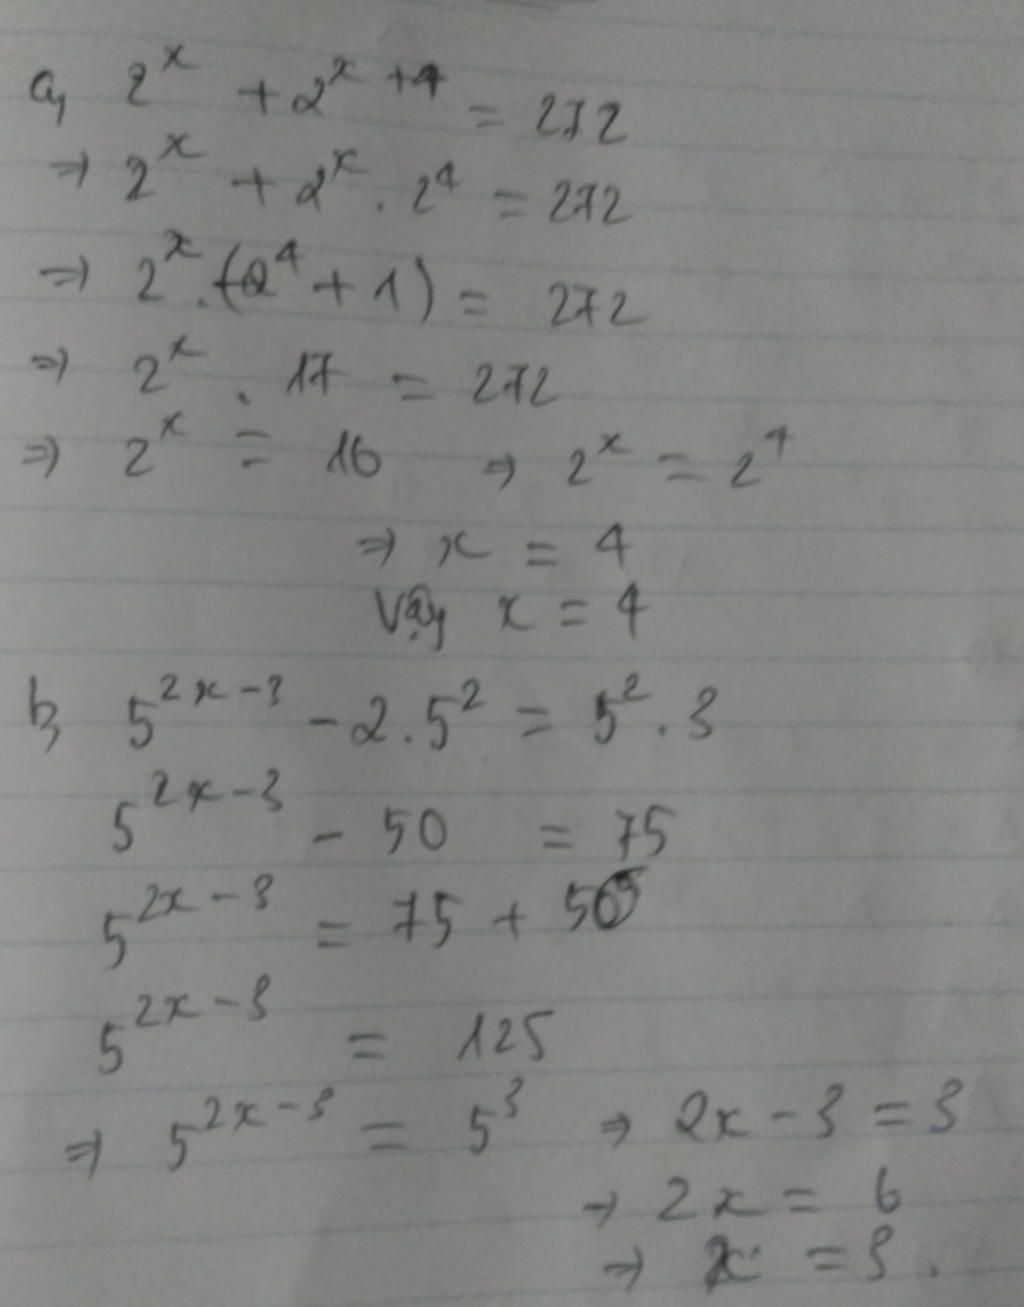 a, 2^x + 2^{x+4} = 272
⇒ 2^x + 2^x . 2^4 = 272
⇒ 2^x . (2^4 + 1) = 272
⇒ 2^x . 17 = 272
⇒ 2^x = 16 ⇒ 2^x = 2^4
⇒ x = 4
Vậy x = 4
b, 5^{2x-3} - 2.5^2 = 5^2 . 3
5^{2x-3} - 50 = 75
5^{2x-3} = 75 + 50
5^{2x-3} = 125
⇒ 5^{2x-3} = 5^3 ⇒ 2x - 3 = 3
⇒ 2x = 6
⇒ x = 3.